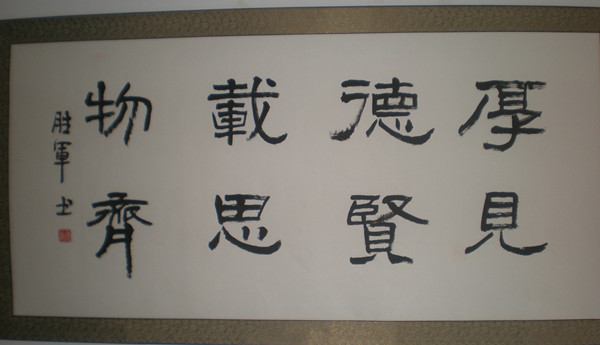 厚德載物
見賢思齊
胜軍书